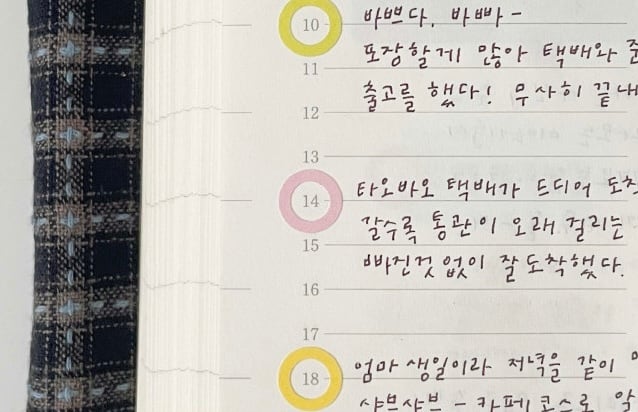 10 바쁘다, 바빠-
포장할게 많아 택배와 준
11
출고를 했다! 무사히 끝내
12
13
14 타오바오 택배가 드디어 도착
갈수록 통관이 오래 걸리는
15
빠진것 없이 잘 도착했다.
16
17
엄마 생일이라 저녁을 같이
18
샤브샤브 - 카페 코스로